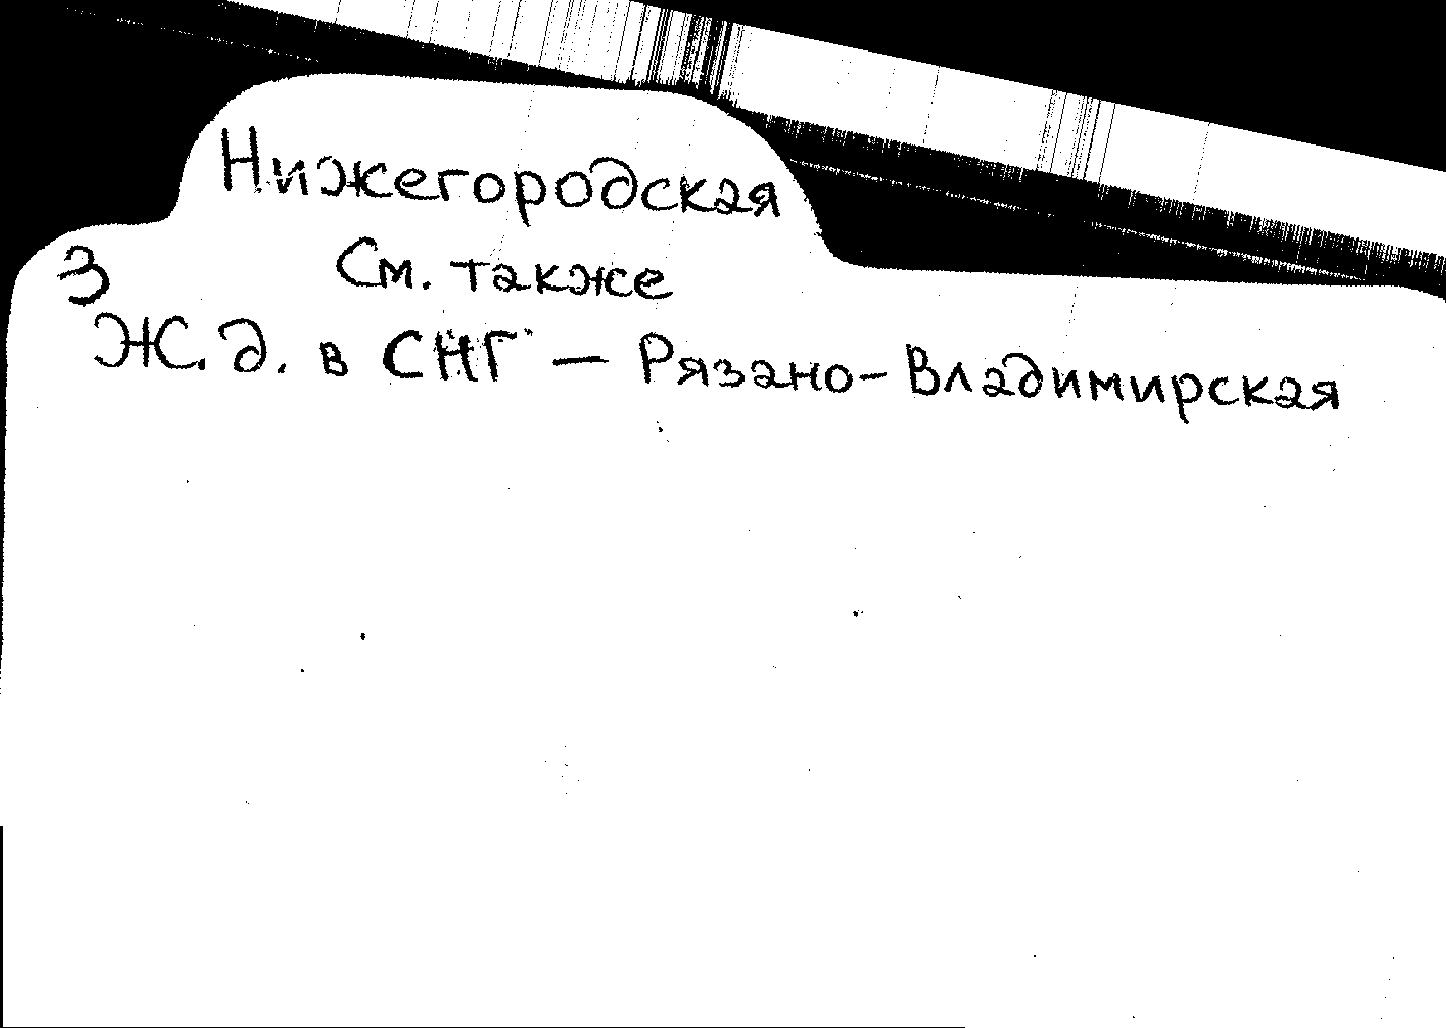 Нижегородская
3 См. также
Ж.д. в СНГ — Рязано-Владимирская